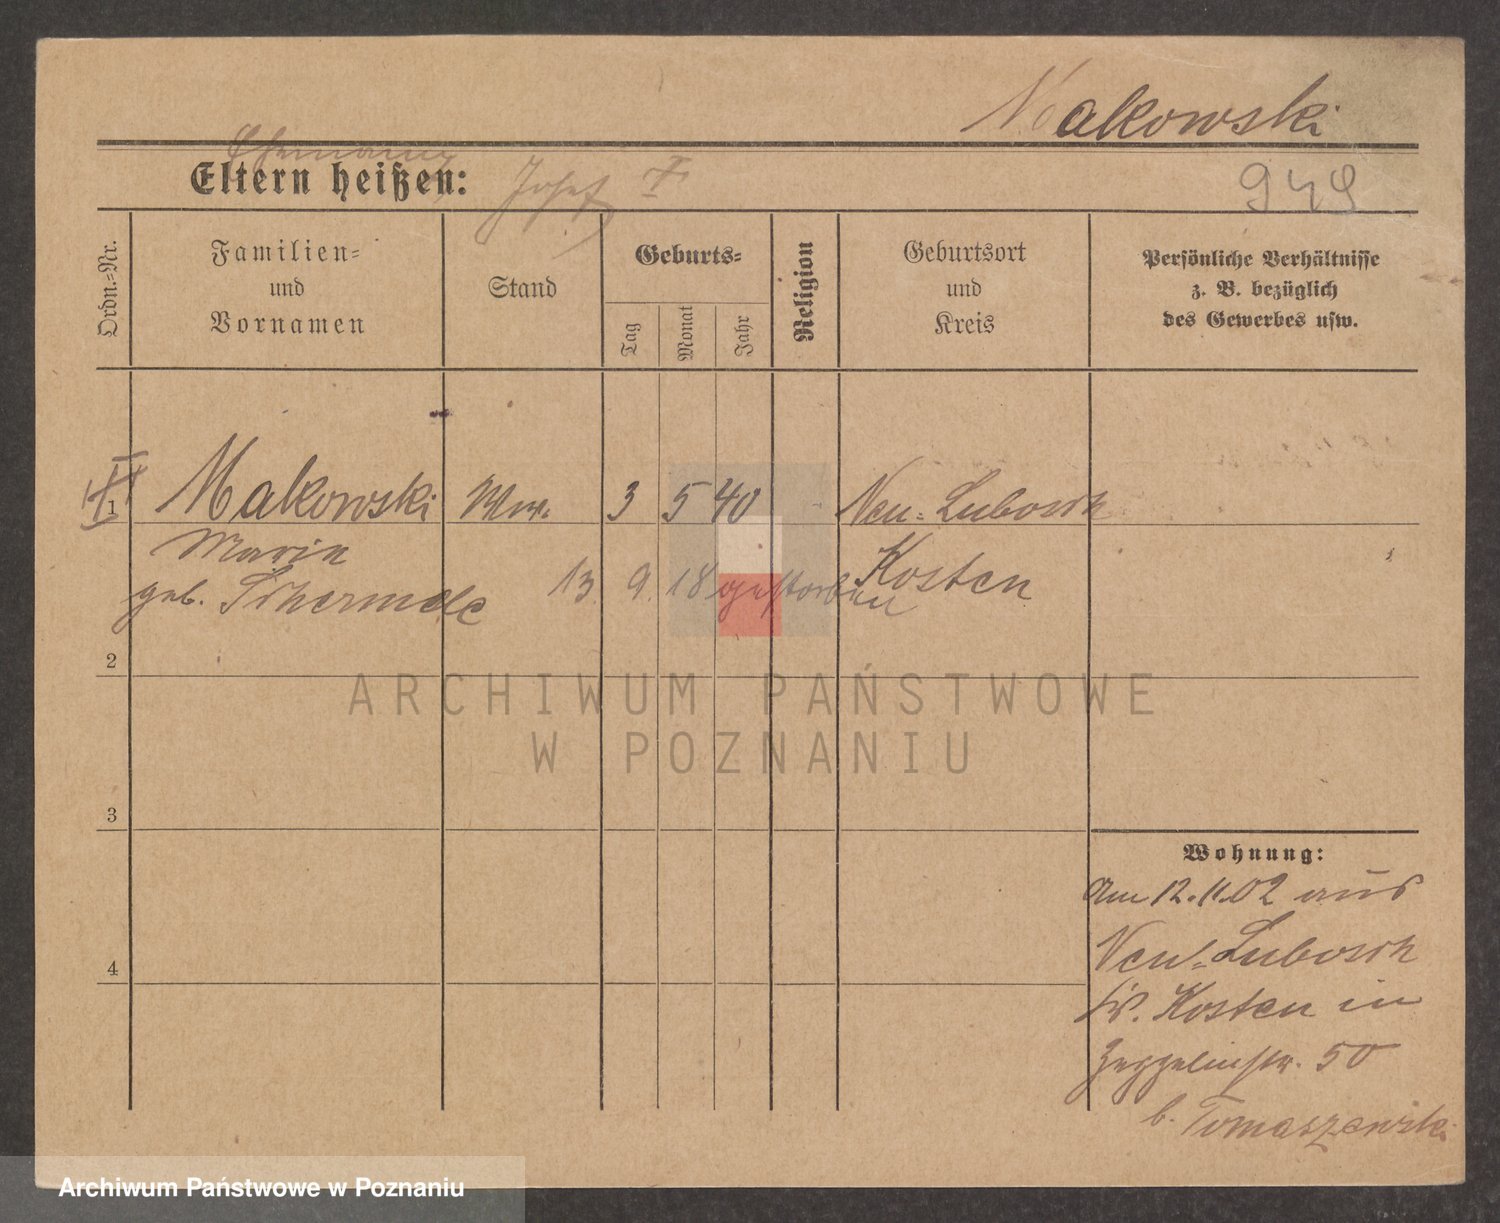 Makowski
Ehemann
Eltern heißen: Josef X
949
Ordn.-Nr.
Familien- und Vornamen
Stand
Geburts-
Tag
Monat
Jahr
Religion
Geburtsort und Kreis
Persönliche Verhältnisse
z. B. bezüglich
des Gewerbes usw.
1 Makowski Ww. 3 5 40 Neu-Lubosch
Maria Kosten
geb. Schermele 13. 9. 18 gestorben
2
ARCHIWUM PAŃSTWOWE
W POZNANIU
3
Wohnung:
Am 12.11.02 aus
Neu-Lubosch
Kr. Kosten in
Zeppelinstr. 50
b. Tomaszewski
4
Archiwum Państwowe w Poznaniu